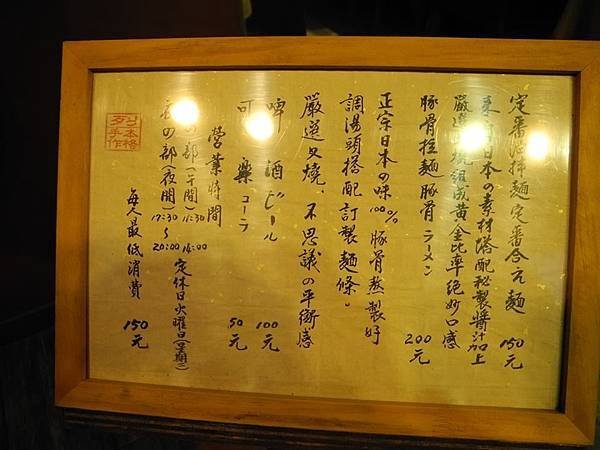 定番油拌麵定番合え麵 150元
日本の素材搭配秘製醬汁加上
嚴選 燒組成黃金比率絕妙口感
豚骨拉麵豚骨ラーメン 200元
正宗日本の味100%豚骨熬製好
調湯頭搭配訂製麵條。
嚴選叉燒、不思議の平衡感
啤酒ビール 100元
可樂コーラ 50元
營業時間
の部(午間)11:30~14:00 定休日火曜日(星期二)
夜の部(夜間)17:30~20:00
每人最低消費 150元
本格
手作